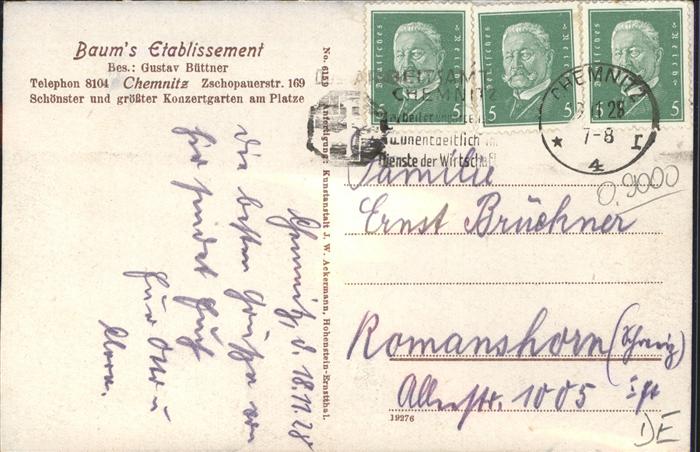 Baum's Etablissement
Bes.: Gustav Büttner
Telephon 8104 Chemnitz Zschopauerstr. 169
Schönster und größter Konzertgarten am Platze
Chemnitz, d. 18.11.28
Die besten Grüße von
hier sendet Euch
Euer Otto u
Klara.
No. 61559 Anfertigung: Kunstanstalt J. W. Ackermann, Hohenstein-Ernstthal.
Deutsches Reich
5 5
Deutsches Reich
5 5
Deutsches Reich
5 5
ARBEITSAMT
CHEMNITZ
unentgeltlich im
Dienste der Wirtschaft
CHEMNITZ
28
7-8
* 4 I
0,9000
Familie
Ernst Brückner
Romanshorn (Schweiz)
1005
19276
DE